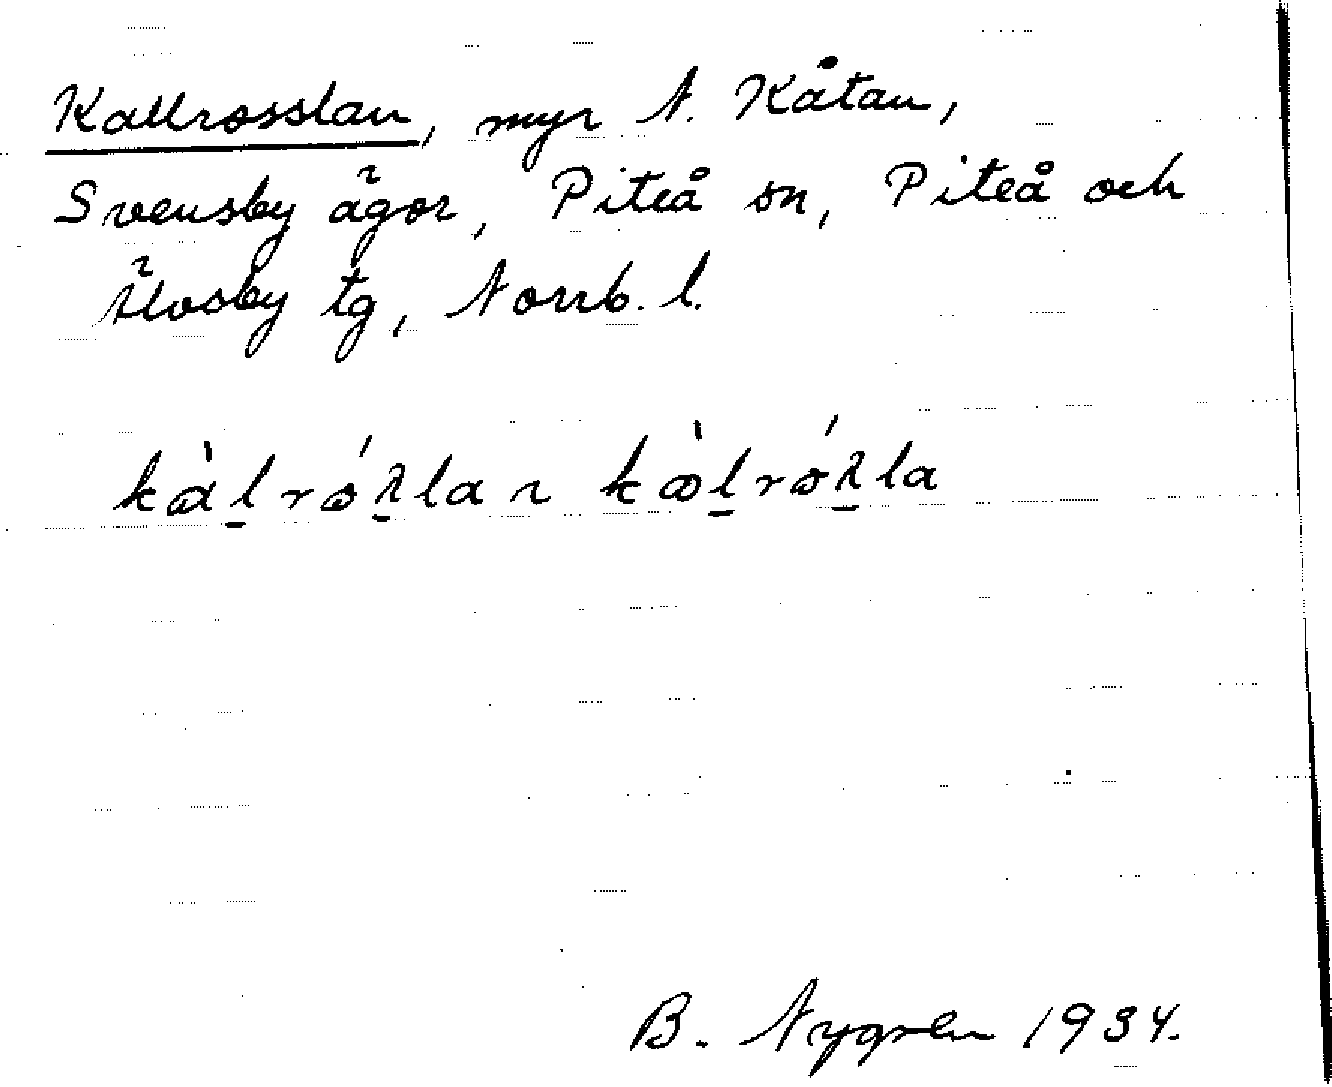 Kallrosslan, myr N. Kåtan,
Svensby ägor, Piteå sn, Piteå och
Älvsby tg, Norrb. l.
B. Nygren 1934.